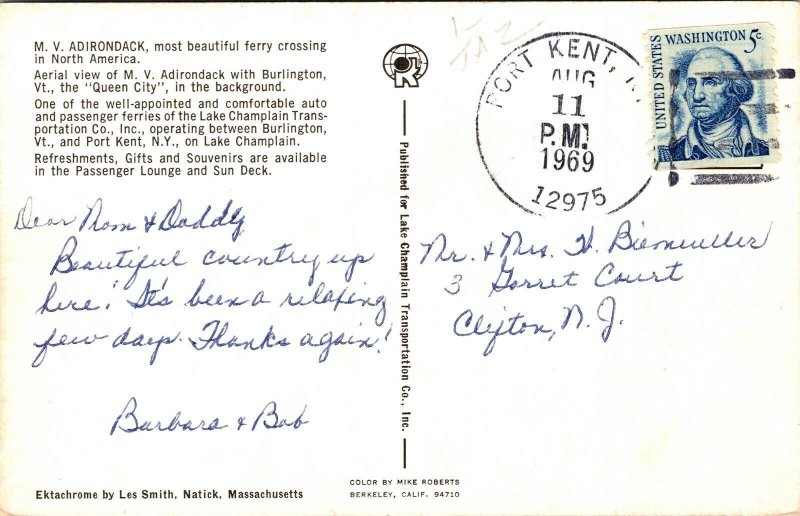 M. V. ADIRONDACK, most beautiful ferry crossing
in North America.
Aerial view of M. V. Adirondack with Burlington,
Vt., the "Queen City", in the background.
One of the well-appointed and comfortable auto
and passenger ferries of the Lake Champlain Trans-
portation Co., Inc., operating between Burlington,
Vt., and Port Kent, N.Y., on Lake Champlain.
Refreshments, Gifts and Souvenirs are available
in the Passenger Lounge and Sun Deck.
Dear Mom & Daddy
Beautiful country up
here! It's been a relaxing
few days. Thanks again!
Barbara & Bob
Ektachrome by Les Smith, Natick, Massachusetts
Published for Lake Champlain Transportation Co., Inc.
COLOR BY MIKE ROBERTS
BERKELEY, CALIF. 94710
PORT KENT, N
AUG
11
P.M.
1969
12975
UNITED STATES
WASHINGTON 5c
Mr. & Mrs. H. Biemuller
3 Garret Court
Clifton, N. J.